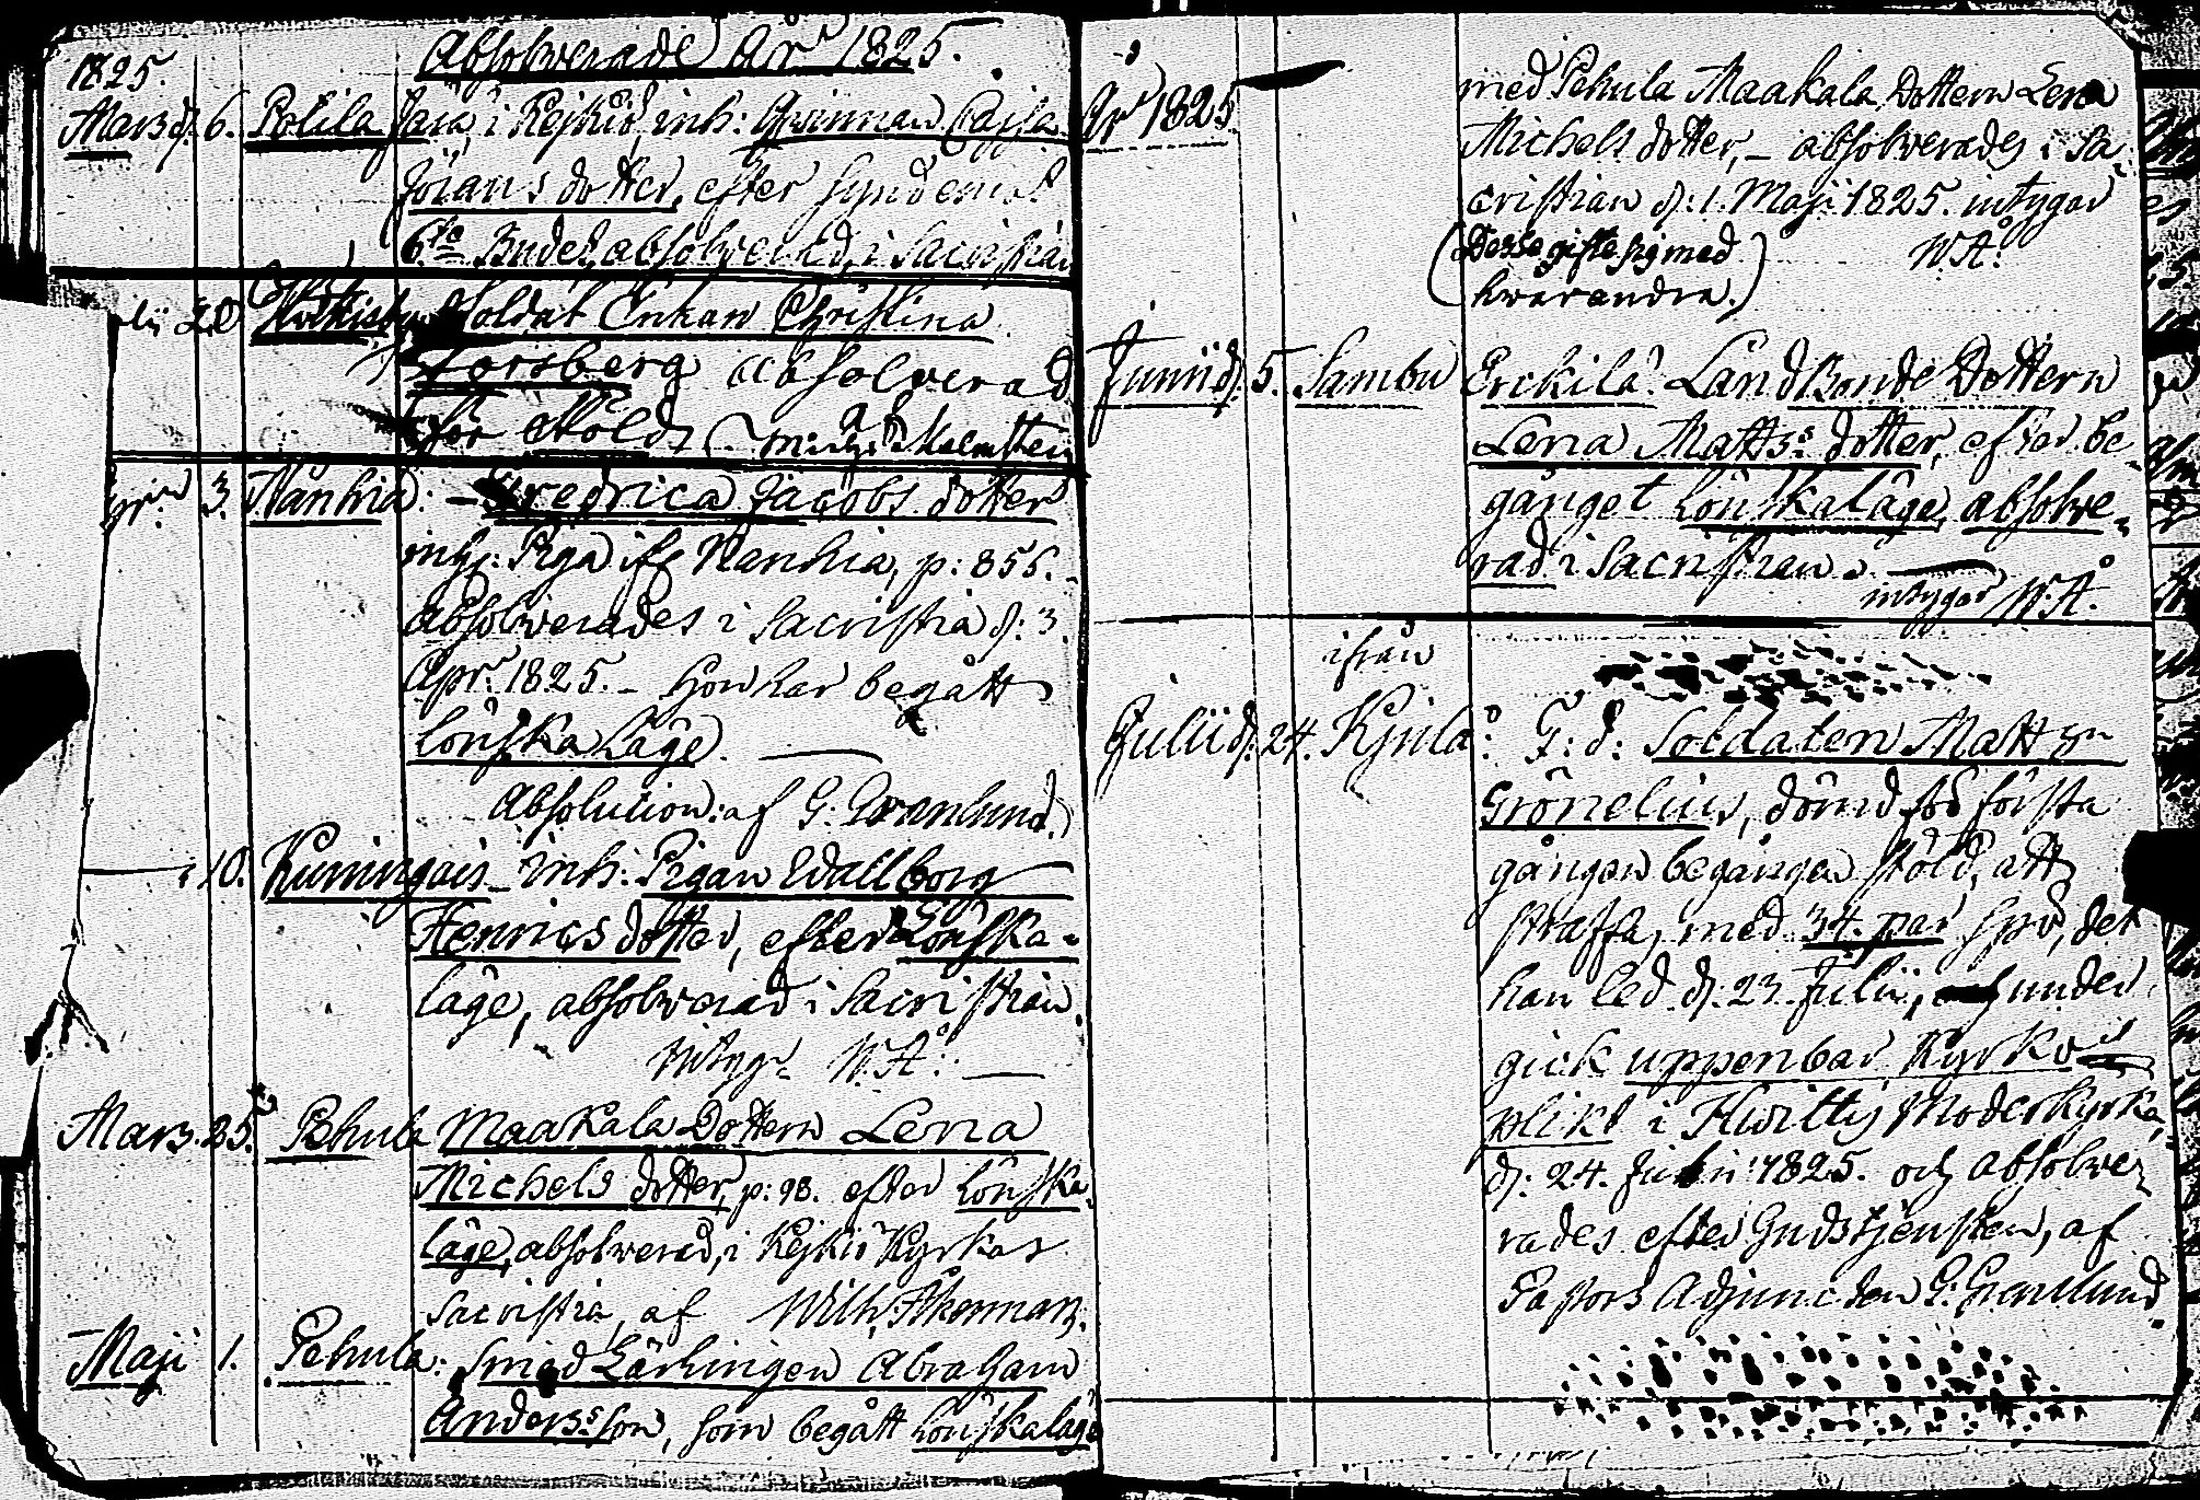 Absolverade År 1825.
1825.
Mars d. 6. Potila Jara, i Kejkiö, inh: Qwinnan Cajsa
Jörans dotter, efter synd emot
6te Budet, absolverad, i Sacristian
20 Soldat Enkan Christina
Forsberg absolverad
för stöld,
3. Nanhia: Fredrica Jacobs dotter
inh: Piga ifr Nanhia, p: 856.
absolverades i Sacristia d: 3.
Apr. 1825. - Hon har begått
lönskaläge.
Absolution: af G: Granlund.
10. Kuningois inh: Pigan Wallborg
Henrics dotter, efter Lönska-
läge, absolverad i Sacristian
intyg. W. Å:
Mars 25. Pehula Maakala Dottern Lena
Michels dotter, p: 98. efter lönska-
läge, absolverad, i Kejkiö Kyrkas
Sacristia, af Wilh. Åkerman.
Maji 1. Pehula: Smed Lärlingen Abraham
Anders:son, som begått lönskaläge
År 1825
med Pehula Maakala Dottern Lena
Michels dotter, - absolverades i Sa-
cristian d: 1. Maji 1825. intygar
W. Å:
(Desse gifte sig med
hwarandra.)
Junii d. 5. Sambu Erckilä: LandBonde Dottern
Lena Matts: dotter, efter be-
gånget lönskaläge, absolve-
rad i Sacristian.
intygar W. Å.
ifrån
Julii d. 24. Kjula: F: d: Soldaten Matts
Grönelius, dömd för första
gången begången stöld, att
straffas med 34. par spö, det
han led d: 23. Julii, under
gick uppenbar Kyrko
plikt i Hwittis Moderkyrka,
d: 24. Julii 1825. och absolve-
rades efter Gudstjensten, af
Pastors Adjuncten G: Granlund.